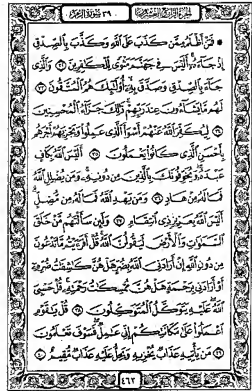 الجزء الرابع والعشرون ٣٩ سورة الزمر
۞ فَمَنْ أَظْلَمُ مِمَّن كَذَبَ عَلَى ٱللَّهِ وَكَذَّبَ بِٱلصِّدْقِ
إِذْ جَآءَهُۥٓ أَلَيْسَ فِى جَهَنَّمَ مَثْوًى لِّلْكَٰفِرِينَ ٣٢ وَٱلَّذِى
جَآءَ بِٱلصِّدْقِ وَصَدَّقَ بِهِۦٓ أُو۟لَٰٓئِكَ هُمُ ٱلْمُتَّقُونَ ٣٣
لَهُم مَّا يَشَآءُونَ عِندَ رَبِّهِمْ ذَٰلِكَ جَزَآءُ ٱلْمُحْسِنِينَ
٣٤ لِيُكَفِّرَ ٱللَّهُ عَنْهُمْ أَسْوَأَ ٱلَّذِى عَمِلُوا۟ وَيَجْزِيَهُمْ أَجْرَهُم
بِأَحْسَنِ ٱلَّذِى كَانُوا۟ يَعْمَلُونَ ٣٥ أَلَيْسَ ٱللَّهُ بِكَافٍ
عَبْدَهُۥ وَيُخَوِّفُونَكَ بِٱلَّذِينَ مِن دُونِهِۦ وَمَن يُضْلِلِ ٱللَّهُ
فَمَا لَهُۥ مِنْ هَادٍ ٣٦ وَمَن يَهْدِ ٱللَّهُ فَمَا لَهُۥ مِن مُّضِلٍّ
أَلَيْسَ ٱللَّهُ بِعَزِيزٍ ذِى ٱنتِقَامٍ ٣٧ وَلَئِن سَأَلْتَهُم مَّنْ خَلَقَ
ٱلسَّمَٰوَٰتِ وَٱلْأَرْضَ لَيَقُولُنَّ ٱللَّهُ قُلْ أَفَرَءَيْتُم مَّا تَدْعُونَ
مِن دُونِ ٱللَّهِ إِنْ أَرَادَنِىَ ٱللَّهُ بِضُرٍّ هَلْ هُنَّ كَٰشِفَٰتُ ضُرِّهِۦٓ
أَوْ أَرَادَنِى بِرَحْمَةٍ هَلْ هُنَّ مُمْسِكَٰتُ رَحْمَتِهِۦ قُلْ حَسْبِىَ
ٱللَّهُ عَلَيْهِ يَتَوَكَّلُ ٱلْمُتَوَكِّلُونَ ٣٨ قُلْ يَٰقَوْمِ
ٱعْمَلُوا۟ عَلَىٰ مَكَانَتِكُمْ إِنِّى عَٰمِلٌ فَسَوْفَ تَعْلَمُونَ
٣٩ مَن يَأْتِيهِ عَذَابٌ يُخْزِيهِ وَيَحِلُّ عَلَيْهِ عَذَابٌ مُّقِيمٌ ٤٠
٤٦٢